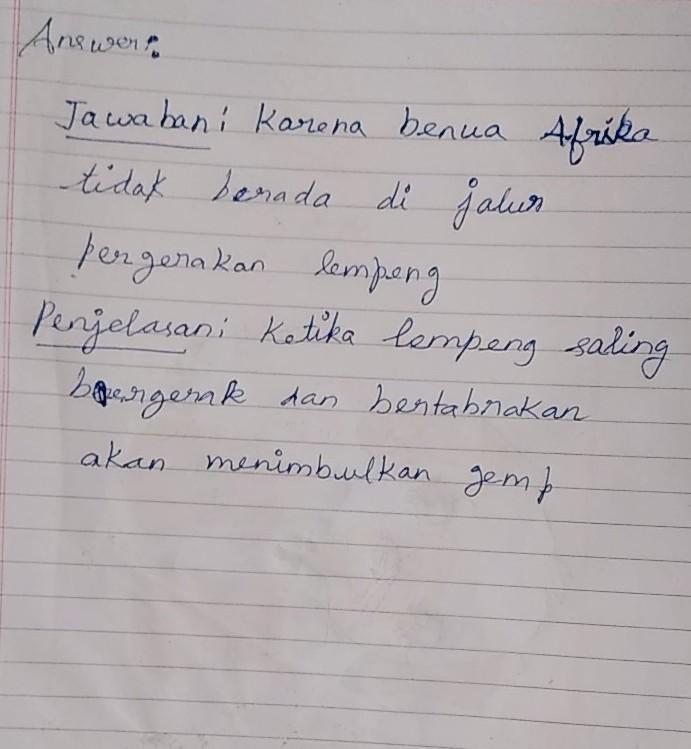 Answer:
Jawaban: Karena benua Afrika
tidak berada di jalur
pergerakan lempeng
Penjelasan: Ketika lempeng saling
bergerak dan bertabrakan
akan menimbulkan gemp